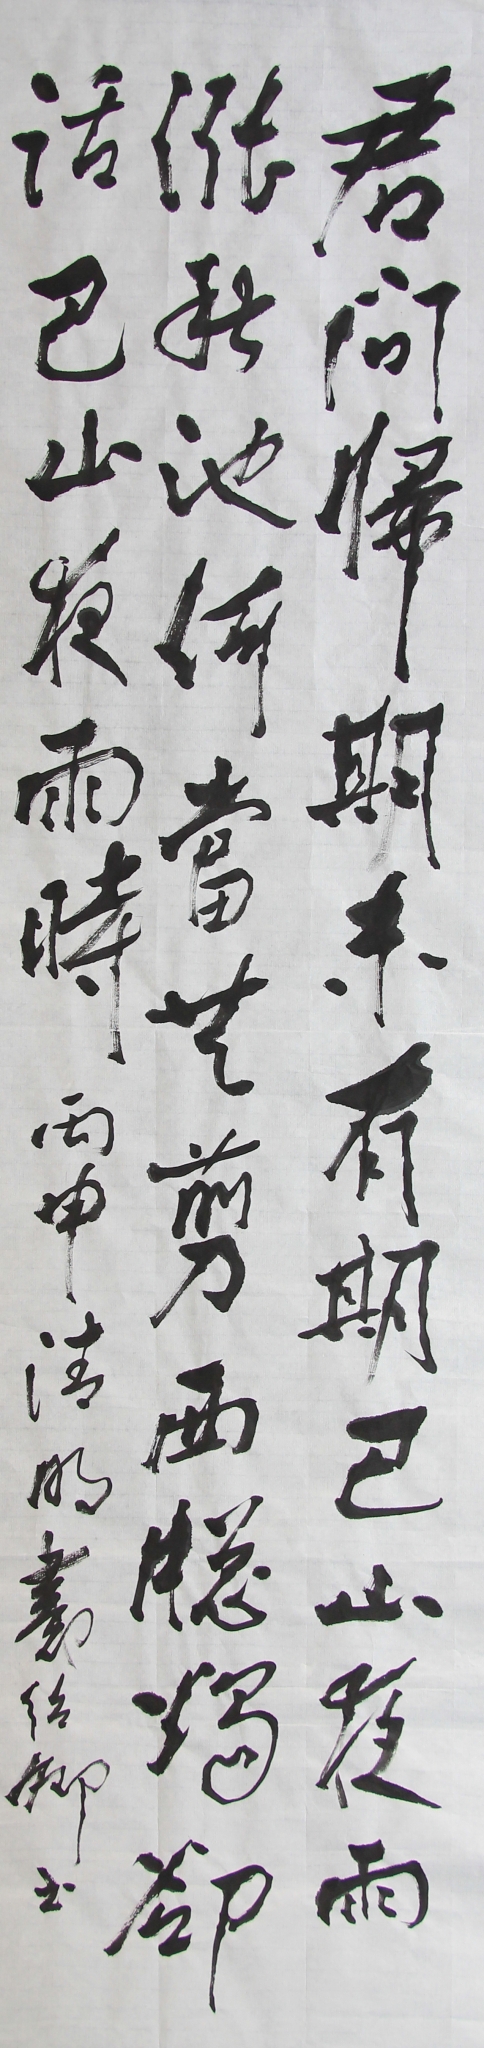 君問歸期未有期巴山夜雨
漲秋池何當共剪西牕燭卻
話巴山夜雨時 丙申清明 紹卿书